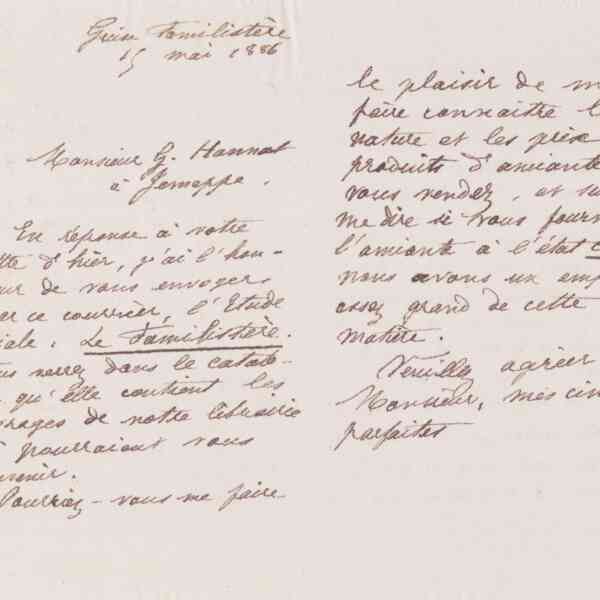 Guise Familistère
15 mai 1886
Monsieur G. Hannot
à Jemeppe.
En réponse à votre
tte d'hier, j'ai l'hon-
ur de vous envoyer
ar ce courrier, l'Etude
iale, Le Familistère.
us verrez dans le catalo-
qu'elle contient les
rages de notre librairie
i pourraient vous
nvenir.
Pourriez-vous me faire
le plaisir de m
faire connaitre l
nature et les prix
produits d'amiante
vous vendez, et su
me dire si vous fourn
l'amiante à l'état
nous avons un emp
assez grand de cette
matière.
Veuillez agréer
Monsieur, mes civ
parfaites